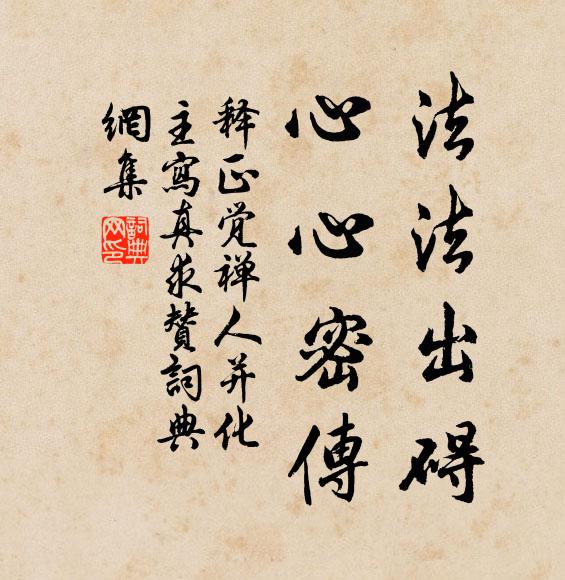 法法出碍
心心密傳
释正觉禅人并化
主寫真求赞詞典
網集
詞典
网印